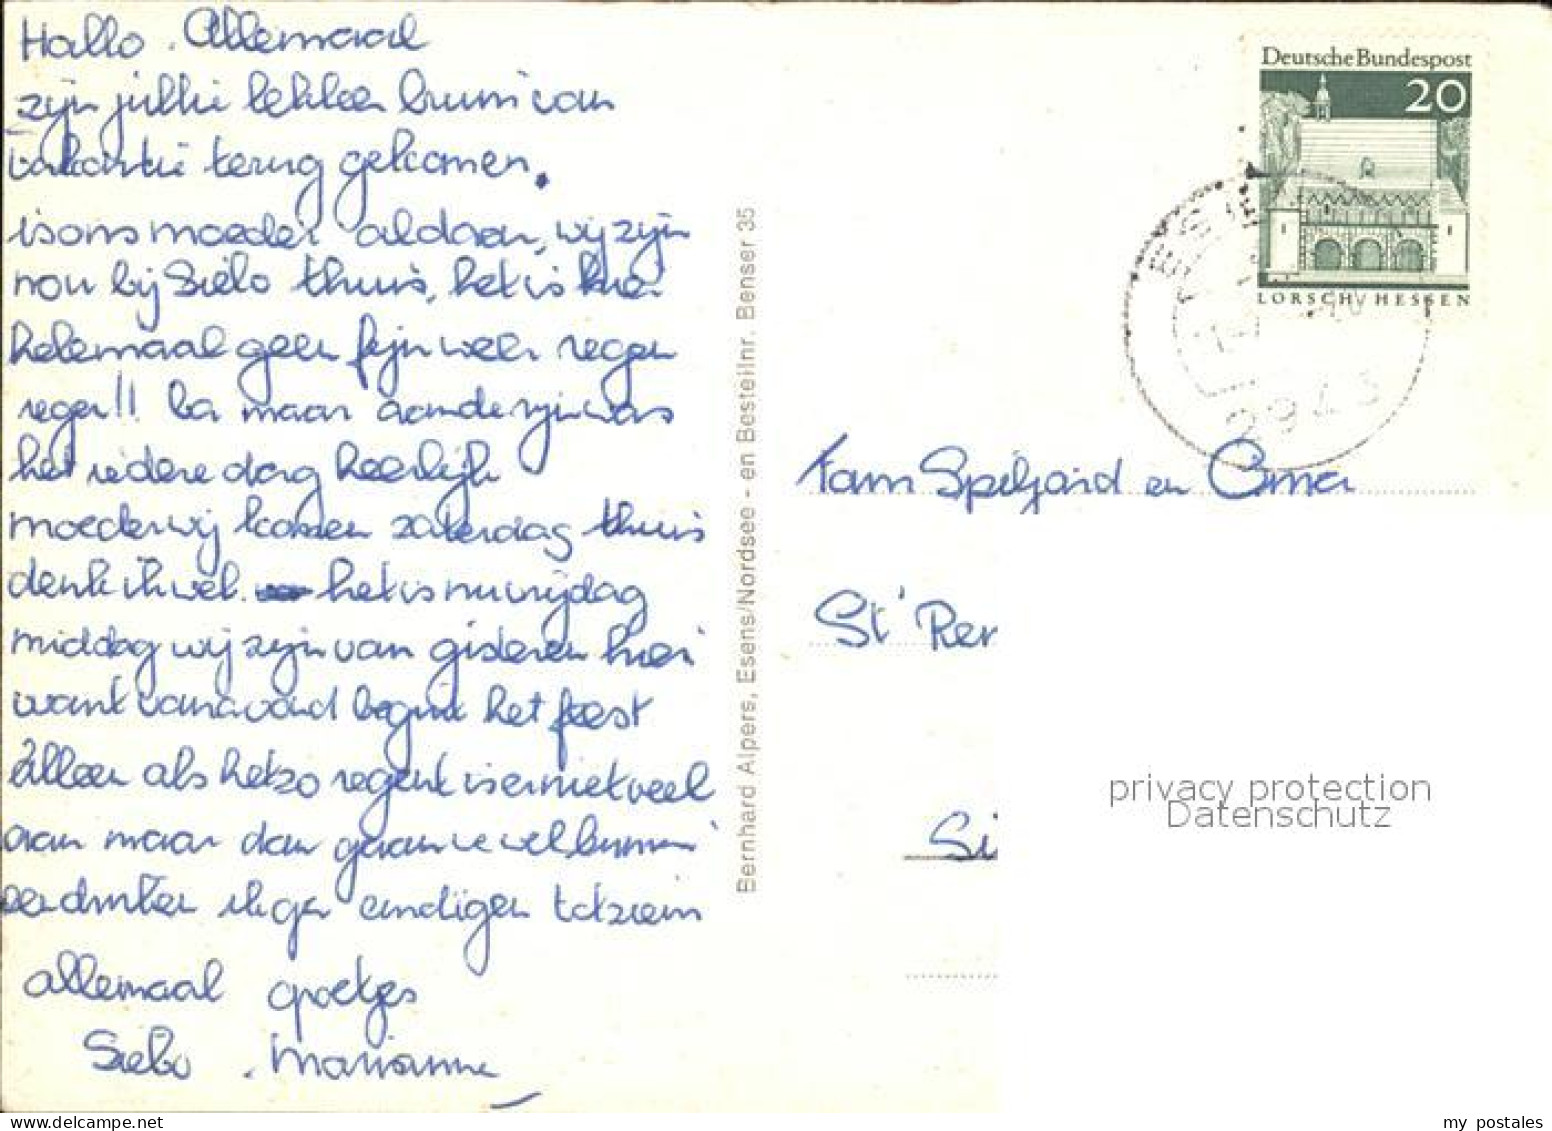 Hallo. Allemaal
zijn jullie lekker bruin van
vakantie terug gekomen.
is ons moeder al daar, wij zijn
nou bij Siebo thuis, het is hier
helemaal geen fijn weer regen
regen!! ba maar aan de rijn was
het iedere dag heerlijk
moeder wij komen zaterdag thuis
denk ik wel. het is nu vrijdag
middag wij zijn van gisteren hier
want vanavond begint het feest
alleen als het zo regent is er niet veel
aan maar dan gaan we wel binnen
ik ga eindigen tot ziens
allemaal groetjes
Siebo. Marianne
Bernhard Alpers, Esens/Nordsee - en Bestellnr. Benser 35
Deutsche Bundespost
20
LORSCH/HESSEN
2943
Fam Spitzard en Oma
St' Ren
Si
privacy protection
Datenschutz
my postales